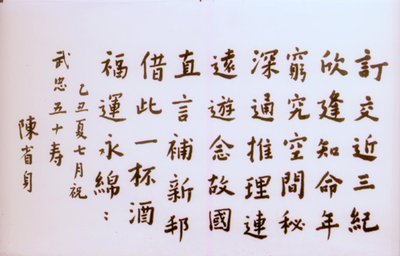 訂交近三紀
欣逢知命年
窮究空間秘
深通推理連
遠遊念故國
直言補新邦
借此一杯酒
福運永綿：
乙丑夏七月祝
武忠五十寿
陳省身